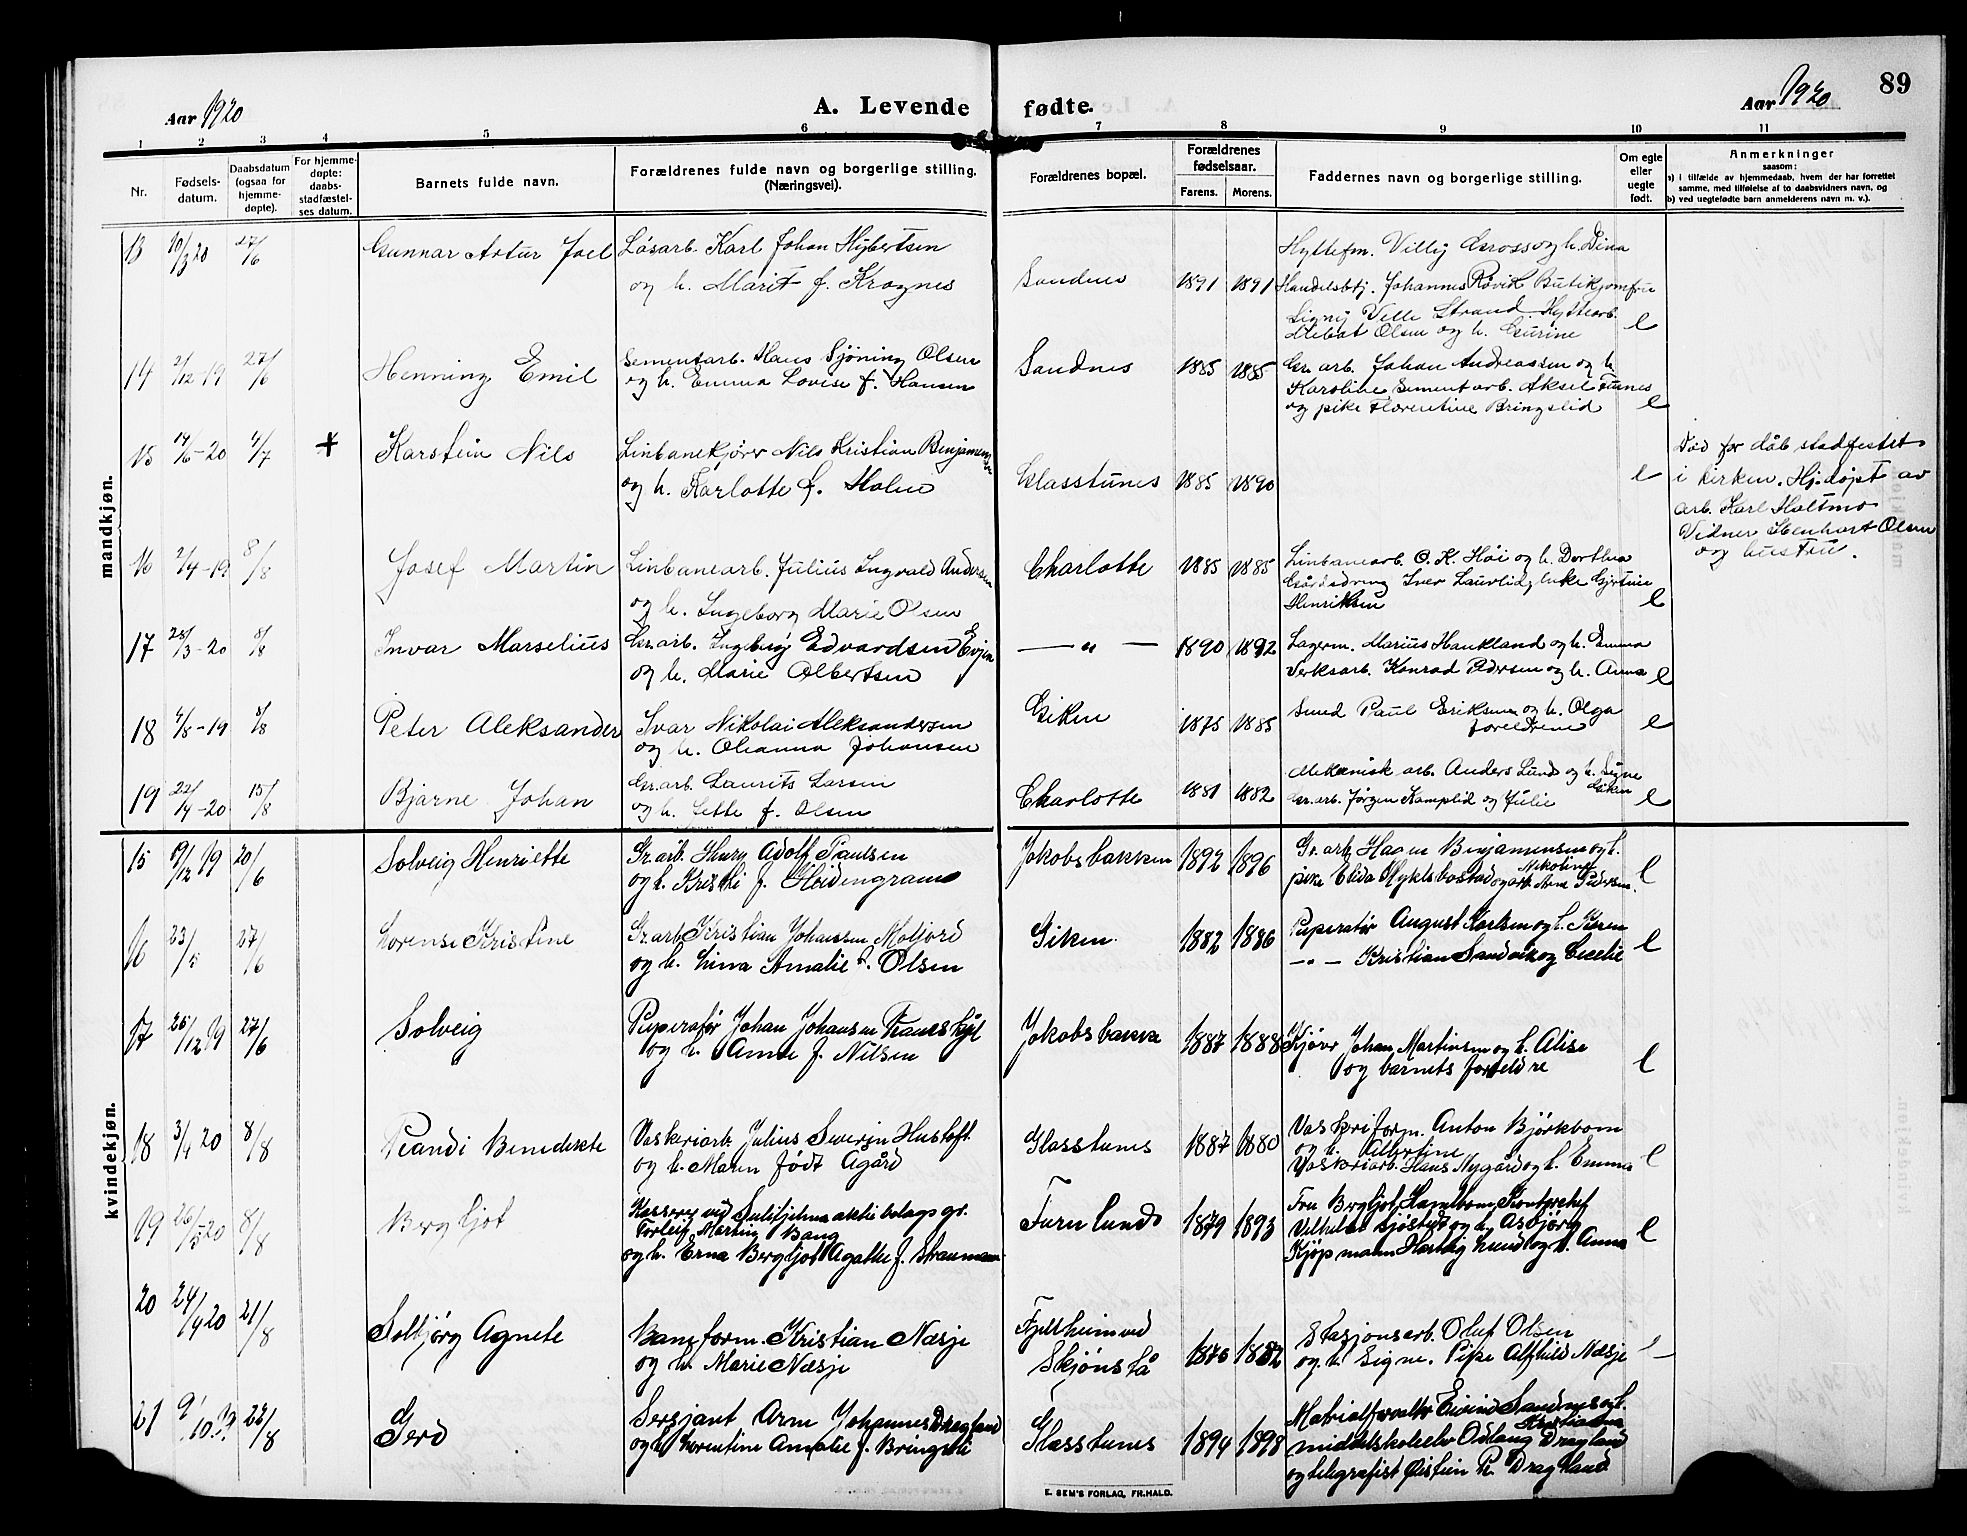 Aar 1920
A. Levende fødte.
Aar 1920
89
1 2 3 4 5 6 7 8 9 10 11
Nr.
Fødsels-
datum.
Daabsdatum
(ogsaa for
hjemme-
døpte).
For hjemme-
døpte:
daabs-
stadfæstel-
ses datum.
Barnets fulde navn.
Forældrenes fulde navn og borgerlige stilling.
(Næringsvei).
Forældrenes bopæl.
Forældrenes
fødselsaar.
Farens. Morens.
Faddernes navn og borgerlige stilling.
Om egte
eller
uegte
født.
Anmerkninger
saasom:
a) i tilfælde av hjemmedaab, hvem der har forrettet
samme, med tilføielse af to daabsvidners navn, og
b) ved uegtefødte barn anmelderens navn m. v.).
mandkjøn.
13 10/3 20 27/6 Gunnar Artur Joel
Løsarb. Karl Johan Hybertsen
og h. Marit f. Krognes
Sandnes 1891 1891
Hyttefm. Villy Gross og h. Dina
Handelsbtj. Johannes Røvik Butikjomfru
Signy Velle Strand. Hyttearb.
Olsen og h. Gurine e
14 2/12-19 27/6 Henning Emil
Sementarb. Hans Sjøning Olsen
og h. Emma Lovise f. Hansen
Sandnes 1885 1885
Gr. arb. Johan Andreassen og h.
Karoline Sementarb. Aksel Furnes
og pike Florentine Bringslid e
15 14/6-20 4/7 + Karstein Nils
Linbanekjører Nils Kristian Benjaminsen
og h. Karlotte f. Holm
Glasstunes 1885 1890 e
Død før dåb stadfestet
i kirken. Hj.døpt av
arb. Karl Holtmo
Vidner Olsen
og hustru.
16 2/4-19 8/8 Josef Martin
Linbanearb. Julius Ingvald Andersen
og h. Ingeborg Marie Olsen
Charlotte 1885 1885
Linbanearb. O. K. Høi og h. Dorthea
Gårdsdreng Iver Laurlid, enke Gjertine
Henriksen e
17 28/3-20 8/8 Invar Marselius
Gr. arb. Ingeberg Edvardsen Evjen
og h. Marie Albertsen
— " — 1890 1892
Lagerm. Marius Haukland og h. Emma
Verksarb. Konrad Pedersen og h. Anna e
18 4/8-19 8/8 Peter Aleksander
Ivar Nikolai Aleksandersen
og h. Oleanna Johansen
Giken 1875 1885
Smed Paul Eriksen og h. Olga
foreldrene e
19 22/4-20 15/8 Bjarne Johan
Gr. arb. Laurits Larsen
og h. Jette f. Olsen
Charlotte 1881 1882
Mekanisk arb. Anders Lund og h. Signe
Giken
Gr. arb. Jørgen Kamplid og Julie e
kvindekjøn.
15 19/12 19 20/6 Solveig Henriette
Gr. arb. Henry Adolf Paulsen
og h. f. Heidengram
Jakobsbakken 1892 1896
Gr. arb. Benjaminsen og h.
Nikoline
pike Elida Myklebostad og arb. Arne Pedersen. e
16 23/5 27/6 Lorense Kristine
Gr. arb. Kristian Johansen Mofjord
og h. Lina Amalie f. Olsen
Giken 1882 1886
Puperatør August Karlsen og h. Karen
— " — Kristian Sandvik og Cecelie e
17 25/12 19 27/6 Solveig
Puperatør Johan Johansen
og h. Anna f. Nilsen
Jakobsbakke 1887 1888
Kjører Johan Martinsen og h. Alise
og barnets foreldre e
18 3/4 20 8/8 Randi Benedikte
Vaskeriarb. Julius Sverin Hustoft
og h. Maren født Ågård
Glasstunes 1887 1880
Vaskeriform. Anton Björkbom
og h. Albertine
Vaskeriarb. Hans Nygård og h. Emma e
19 26/5 20 8/8 Bergljot
Kasserer ved Sulitjelma aktiebolags gr.
Torleif Martin Bang
og h. Erna Bergljot Agathe f. Straumann
Furulund 1879 1893
Fru Bergljot Hambom, Kontorchef
Vilhelm Sjøsted og h. Asbjørg
Kjøpmann Hartvig Lund og h. Anna e
20 24/4 20 21/8 Solbjørg Agnete
Baneform. Kristian Næsje
og h. Marie Næsje
Fjellheim ved
Skjønstå 1876 1882
Stasjonsarb. Oluf Olsen
og h. Signe. Pike Alfhild Næsje
21 9/10 19 22/8 Gerd
Sersjant Arne Johannes Dragland
og h. Lorentine Amalie f. Bringsli
Glasstunes 1894 1898
Matrialforvalter Eivind Sandnes og h.
Kristianna
middelskoleelev Odlaug Dragland
og telegrafist Øistein R. Dragland
E. SEM'S FORLAG, FR.HALD.